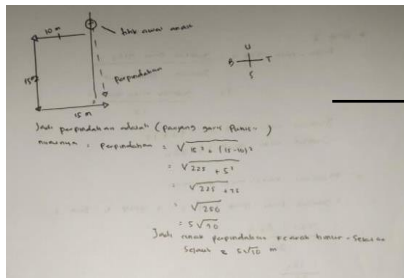 10 m
titik awal anak
U
B T
S
15 m
perpindahan
15 m
Jadi perpindahan adalah (panjang garis putus-)
rumusnya = Perpindahan = √15² + (15-10)²
= √225 + 5²
= √225 + 25
= √250
= 5√10
Jadi anak perpindahan kearah timur-selatan
sejauh 5√10 m